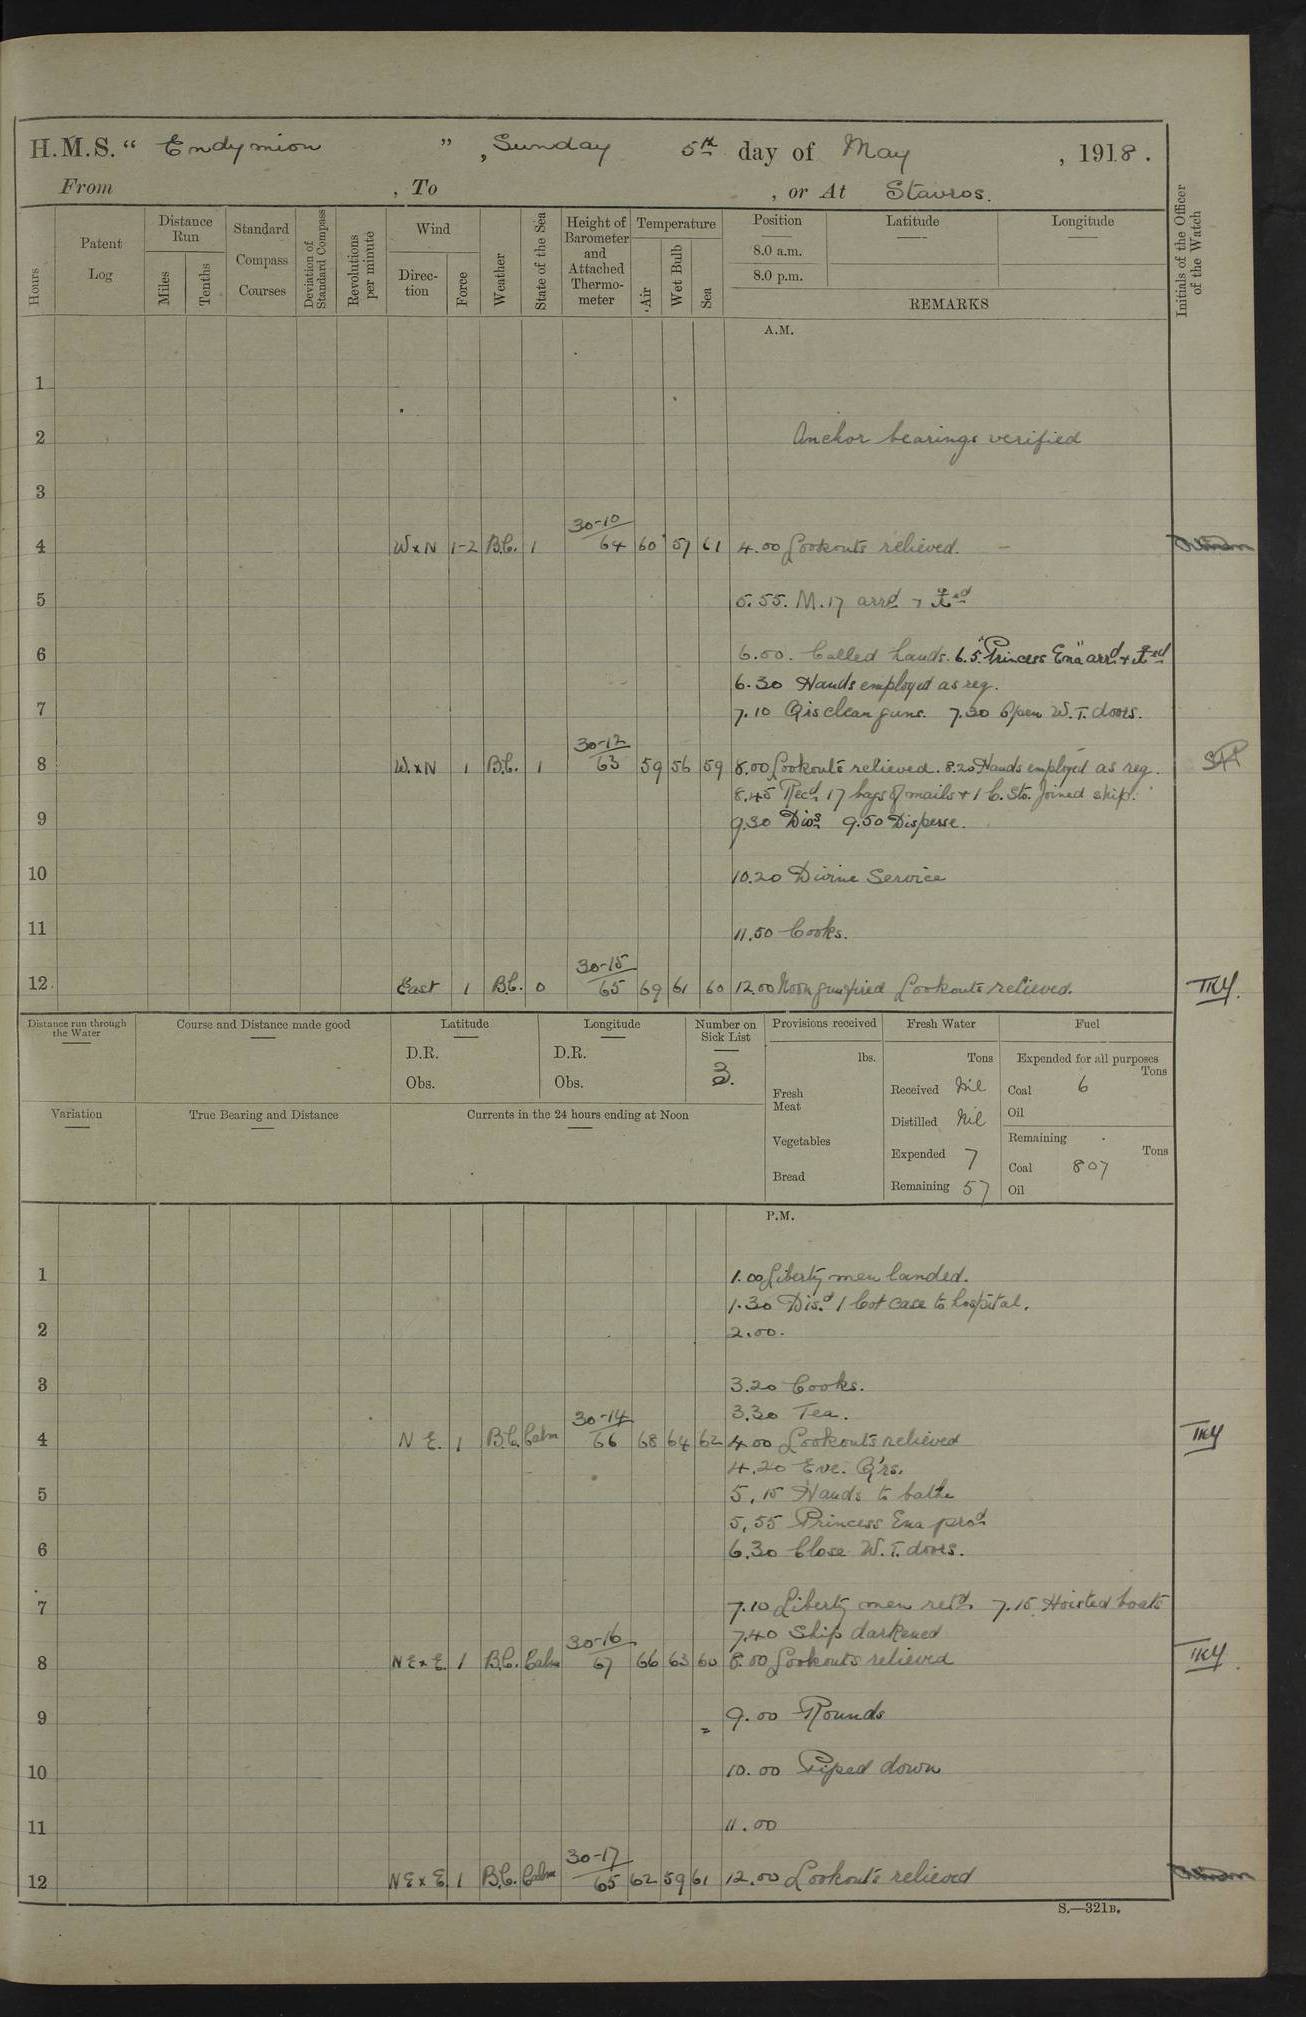 H.M.S. " Endymion ", Sunday 5th day of May, 1918.
From , To , or At Stavros.
Hours
Patent Log
Distance Run
Miles
Tenths
Standard Compass Courses
Deviation of Standard Compass
Revolutions per minute
Wind
Direction
Force
Weather
State of the Sea
Height of Barometer and Attached Thermometer
Temperature
Air
Wet Bulb
Sea
Position Latitude Longitude
8.0 a.m.
8.0 p.m.
REMARKS
Initials of the Officer of the Watch
A.M.
1
2 Anchor bearings verified
3
4 W x N 1-2 B.C. 1 30-10 64 60 57 61 4.00 Lookouts relieved.
5 5.55. M.17 arrd
6 6.00. Called hands. 6.5. "Princess Ena" arrd
6.30 Hands employed as req.
7 7.10 Qrs clean guns. 7.30 Open W.T. doors.
8 W x N 1 B.C. 1 30-12 63 59 56 59 8.00 Lookouts relieved. 8.20 Hands employed as req.
8.45 Recd 17 bags of mails + 1 C. Sto. joined ship.
9 9.30 Divs 9.50 Disperse.
10 10.20 Divine Service
11 11.50 Cooks.
12 East 1 B.C. 0 30-15 65 69 61 60 12.00 Noon gun fired Lookouts relieved. TKY.
Distance run through the Water
Course and Distance made good
Latitude
D.R.
Obs.
Longitude
D.R.
Obs.
Number on Sick List
3.
Provisions received
lbs.
Fresh Meat
Vegetables
Bread
Fresh Water
Tons
Received Nil
Distilled Nil
Expended 7
Remaining 57
Fuel
Expended for all purposes
Tons
Coal 6
Oil
Remaining
Tons
Coal 807
Oil
Variation
True Bearing and Distance
Currents in the 24 hours ending at Noon
P.M.
1 1.00 Liberty men landed.
1.30 Dis.d 1 Cot case to hospital.
2 2.00.
3 3.20 Cooks.
3.30 Tea.
4 N E. 1 B.C. Calm 30-14 66 68 64 62 4.00 Lookouts relieved TKY
4.20 Eve. Qrs.
5 5.15 Hands to bathe
5.55 Princess Ena procd
6 6.30 Close W.T. doors.
7 7.10 Liberty men retd. 7.15 Hoisted boats
7.40 Ship darkened
8 NE x E. 1 B.C. Calm 30-16 67 66 63 60 8.00 Lookouts relieved TKY
9 9.00 Rounds
10 10.00 Piped down
11 11.00
12 NE x E 1 B.C. Calm 30-17 65 62 59 61 12.00 Lookouts relieved
S.—321B.